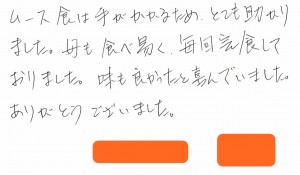 ムース食は手がかかるため、とても助かり
ました。母も食べ易く、毎回完食して
おりました。味も良かったと喜んでいました。
ありがとうございました。